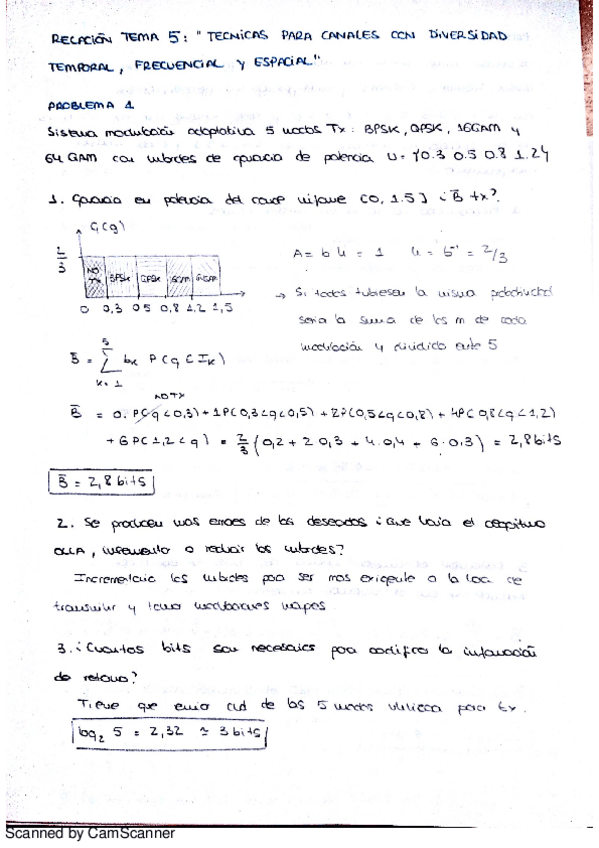 RELACIÓN TEMA 5: "TECNICAS PARA CANALES CON DIVERSIDAD
TEMPORAL, FRECUENCIAL Y ESPACIAL"
PROBLEMA 1
Sistema modulación adaptativa 5 modos Tx: BPSK, QPSK, 16QAM y
64 QAM con umbrales de ganancia de potencia U = {0.3 0.5 0.8 1.2}
1. Ganancia en potencia del canal uniforme [0, 1.5] ¿B̄ tx?
G(g)
2/3
NO TX BPSK QPSK
0 0,3 0,5 0,8 1,2 1,5
A = b h = 1 h = b⁻¹ = 2/3
→ Si todos tubiesen la misma probabilidad
seria la suma de los m de cada
modulación y dividido ente 5
B̄ = Σ bk P(g ∈ Ik)
5
k=1
NO TX
B̄ = 0. P(g<0,3) + 1P(0,3<g<0,5) + 2P(0,5<g<0,8) + 4P(0,8<g<1,2)
+ 6P(1,2<g) = 2/3 (0,2 + 2·0,3 + 4·0,4 + 6·0,3) = 2,8 bits
B̄ = 2,8 bits
2. Se producen mas errores de los deseados ¿Que haria el algoritmo
OLLA, incremento o reducir los umbrales?
Incrementaria los umbrales para ser mas exigente a la hora de
transmitir y tomar modulaciones
3. ¿Cuantos bits son necesarios para codificar la información
de retorno?
Tiene que enviar cual de los 5 modos utilizar para tx.
log₂ 5 = 2,32 ≈ 3 bits
Scanned by CamScanner